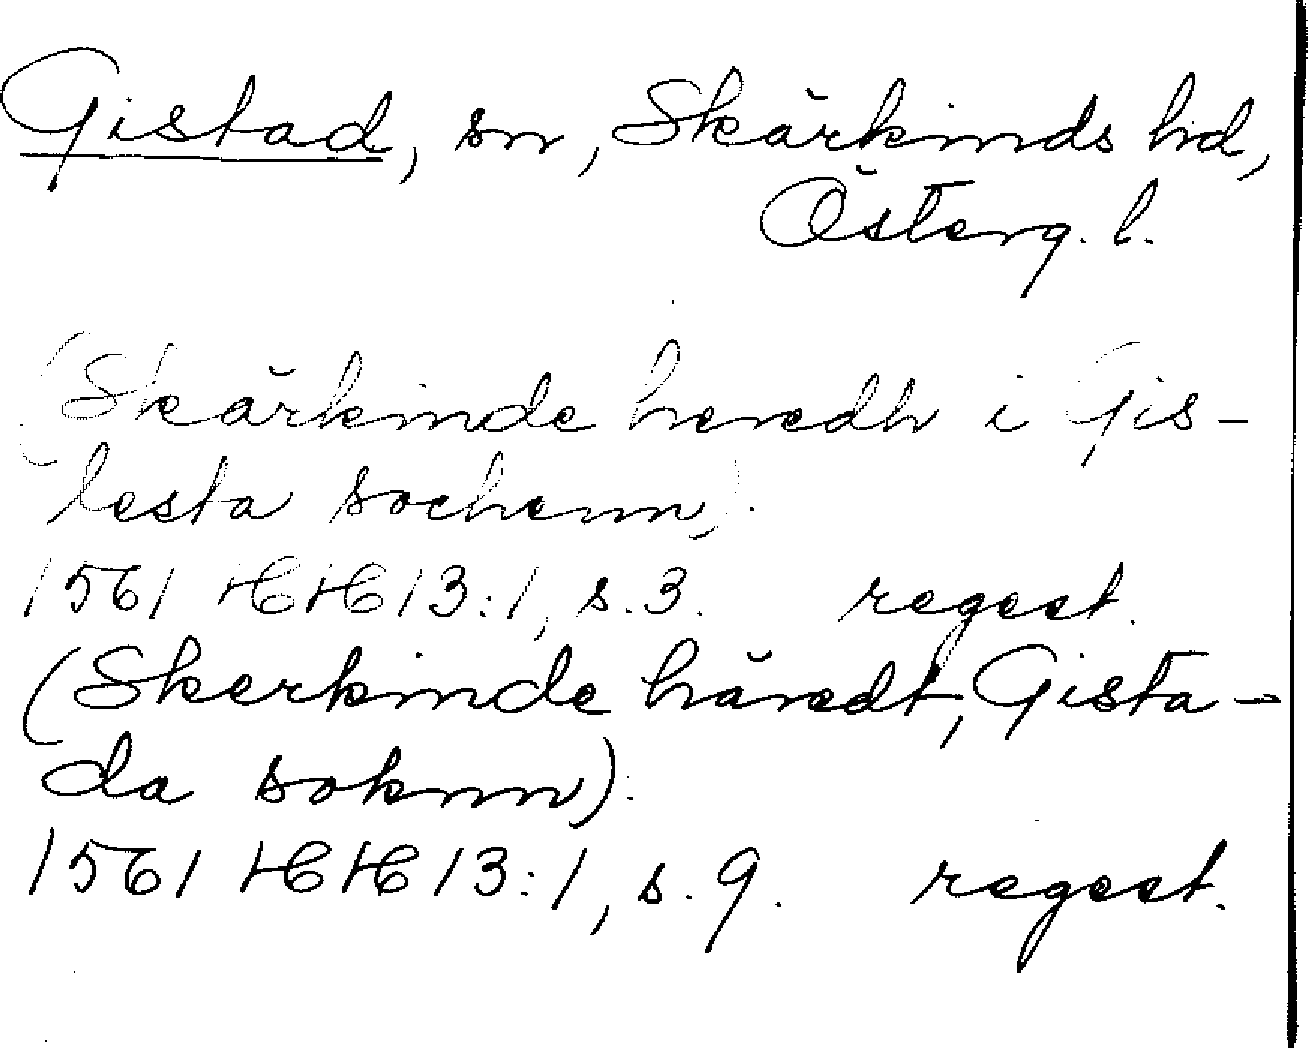 Gistad, sn, Skärkinds hd,
Österg. l.
(Skärkinde heredh i Gis-
lesta sochenn).
1561 HH 13:1, s. 3. regest.
(Skerkinde häredt, Gista-
da soknn).
1561 HH 13:1, s. 9. regest.